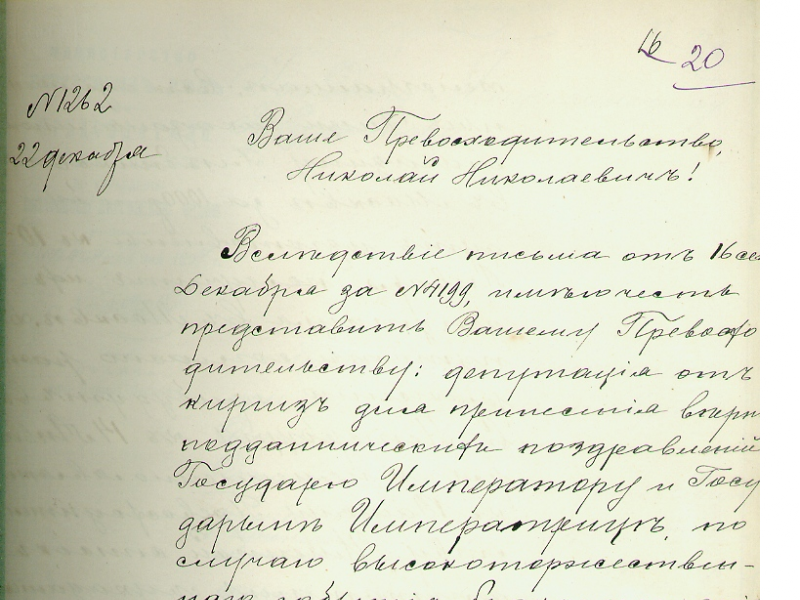 16 20
№ 1262
22 декабря
Ваше Превосходительство,
Николай Николаевичъ!
Вслѣдствіе письма отъ 16 сего
Декабря за № 4199, имѣю честь
представить Вашему Превосхо
дительству: депутація отъ
киргизъ для принесенія вѣрно
подданническихъ поздравленій
Государю Императору и Госу
дарынѣ Императрицѣ, по
случаю высокоторжествен-
наго событія